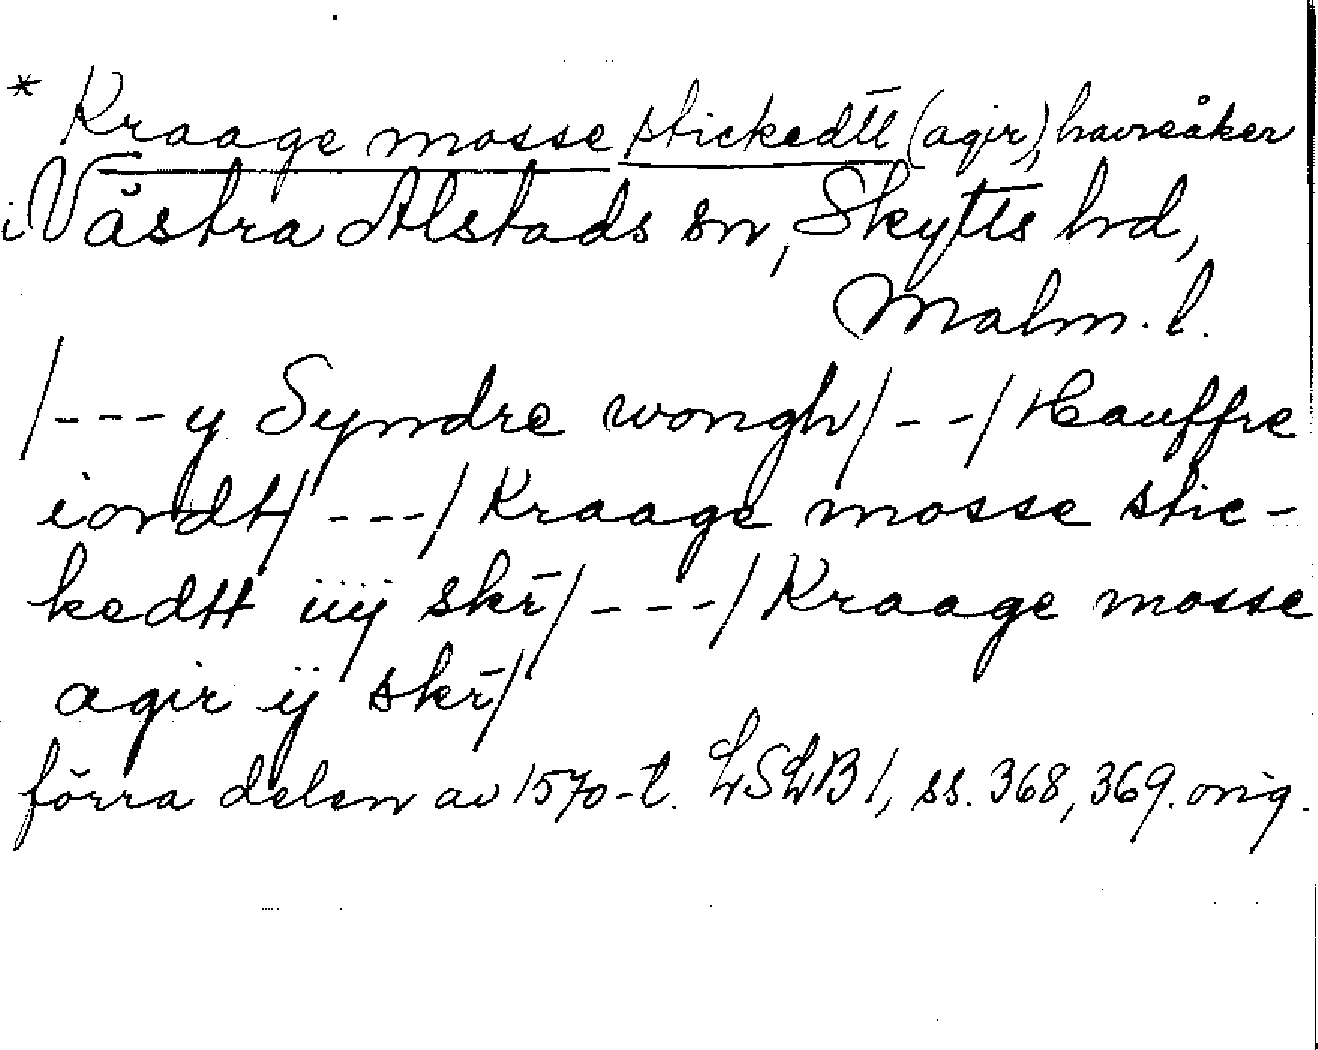 * Kraage mosse stickedtt (agir), havreåker
i Västra Alstads sn, Skytts hd,
Malm. l.
/---y Syndre wongh/--/Hauffre
iordtt/---/Kraage mosse stic-
kedtt iiÿ skr̄/---/Kraage mosse
agir ÿ skr̄/
förra delen av 1570-t. LSLB 1, ss. 368, 369. orig.